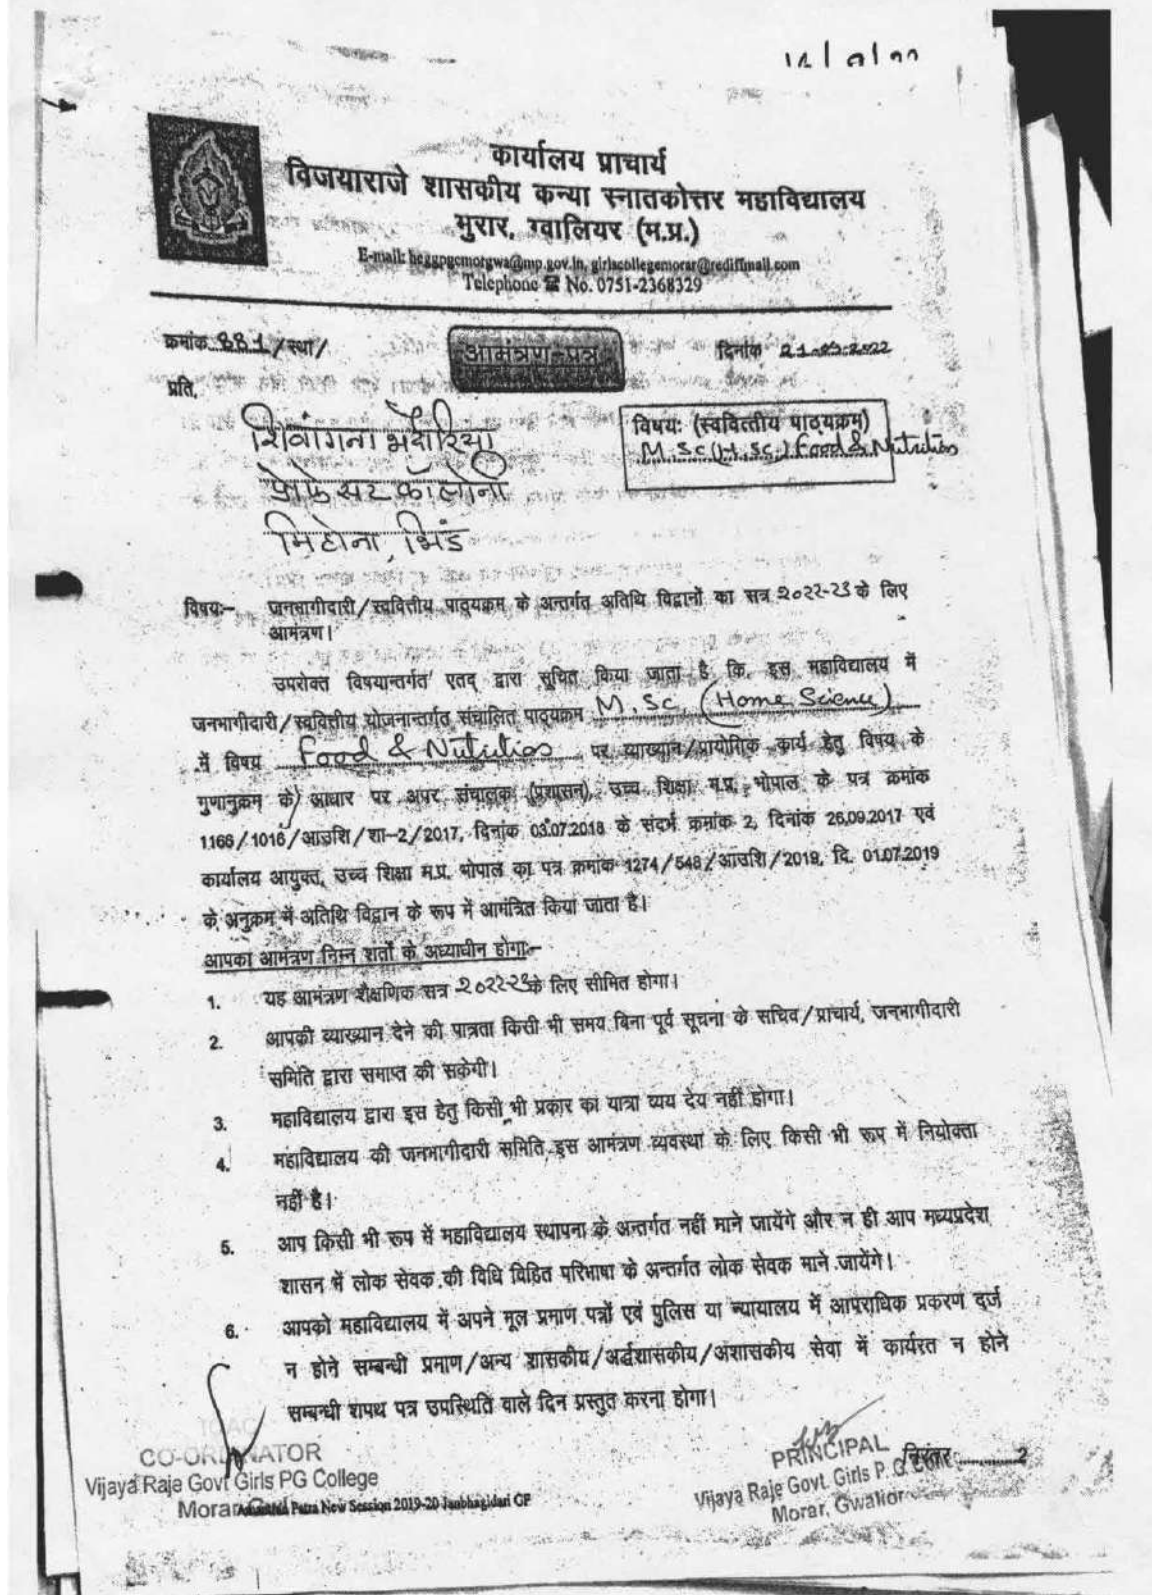 कार्यालय प्राचार्य
विजयाराजे शासकीय कन्या स्नातकोत्तर महाविद्यालय
मुरार, ग्वालियर (म.प्र.)
E-mail: heggpgcmorgwa@mp.gov.in, girlscollegemorar@rediffmail.com
Telephone ☎ No. 0751-2368329
क्रमांक 881/स्था/
आमंत्रण-पत्र
दिनांक 21-09-2022
प्रति,
शिवांगना भदौरिया
विषय: (स्ववित्तीय पाठ्यक्रम)
M.Sc (H.Sc.) Food & Nutrition
प्रोफेसर कॉलोनी
मिहोना, भिंड
विषय:- जनभागीदारी/स्ववित्तीय पाठ्यक्रम के अन्तर्गत अतिथि विद्वानों का सत्र 2022-23 के लिए
आमंत्रण।
उपरोक्त विषयान्तर्गत एतद् द्वारा सूचित किया जाता है कि इस महाविद्यालय में
जनभागीदारी/स्ववित्तीय योजनान्तर्गत संचालित पाठ्यक्रम M.Sc. (Home Science)
में विषय Food & Nutrition पर व्याख्यान/प्रायोगिक कार्य हेतु विषय के
गुणानुक्रम के आधार पर अपर संचालक (प्रशासन), उच्च शिक्षा म.प्र. भोपाल के पत्र क्रमांक
1166/1016/आउशि/शा-2/2017, दिनांक 03.07.2018 के संदर्भ क्रमांक 2, दिनांक 26.09.2017 एवं
कार्यालय आयुक्त, उच्च शिक्षा म.प्र. भोपाल का पत्र क्रमांक 1274/548/आउशि/2019, दि. 01.07.2019
के अनुक्रम में अतिथि विद्वान के रूप में आमंत्रित किया जाता है।
आपका आमंत्रण निम्न शर्तों के अध्याधीन होगा:-
1. यह आमंत्रण शैक्षणिक सत्र 2022-23 के लिए सीमित होगा।
2. आपकी व्याख्यान देने की पात्रता किसी भी समय बिना पूर्व सूचना के सचिव/प्राचार्य, जनभागीदारी
समिति द्वारा समाप्त की सकेगी।
3. महाविद्यालय द्वारा इस हेतु किसी भी प्रकार का यात्रा व्यय देय नहीं होगा।
4. महाविद्यालय की जनभागीदारी समिति इस आमंत्रण व्यवस्था के लिए किसी भी रूप में नियोक्ता
नहीं है।
5. आप किसी भी रूप में महाविद्यालय स्थापना के अन्तर्गत नहीं माने जायेंगे और न ही आप मध्यप्रदेश
शासन में लोक सेवक की विधि विहित परिभाषा के अन्तर्गत लोक सेवक माने जायेंगे।
6. आपको महाविद्यालय में अपने मूल प्रमाण पत्रों एवं पुलिस या न्यायालय में आपराधिक प्रकरण दर्ज
न होने सम्बन्धी प्रमाण/अन्य शासकीय/अर्द्धशासकीय/अशासकीय सेवा में कार्यरत न होने
सम्बन्धी शपथ पत्र उपस्थिति वाले दिन प्रस्तुत करना होगा।
CO-ORDINATOR
Vijaya Raje Govt Girls PG College
Morar
Patra New Session 2019-20 Janbhagidari GF
PRINCIPAL
Vijaya Raje Govt. Girls P. G.
Morar, Gwalior
निरंतर..........2